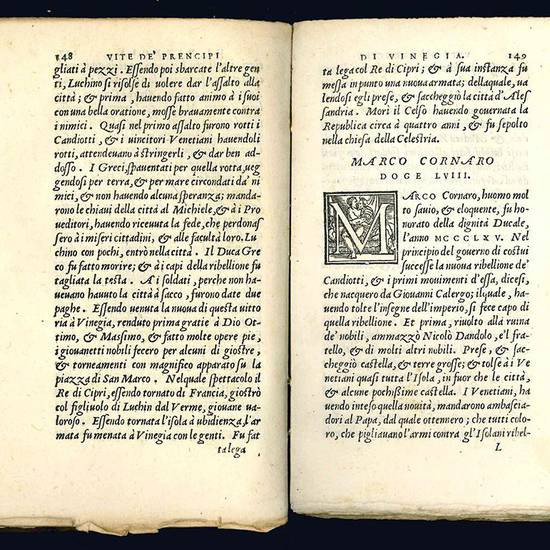 148 VITE DE' PRENCIPI
gliati à pezzi. Essendo poi sbarcate l'altre gen
ti, Luchino si risolse di volere dar l'assalto alla
città; & prima, havendo fatto animo à i suoi
con una bella oratione, mosse bravamente contra
i nimici. Quasi nel primo assalto furono rotti i
Candiotti, & i vincitori Venetiani havendoli
rotti, attendevano à stringerli, & dar ben ad-
dosso. I Greci, spaventati per quella rotta, veg-
gendosi per terra, & per mare circondati da' ni
mici, & non havendo alcuna speranza; manda-
rono le chiavi della città al Michiele, & à i Pro
veditori, havendo ricevuta la fede, che perdonas
sero à i miseri cittadini, & alle facultà loro. Lu
chino con pochi, entrò nella città. Il Duca Gre
co fu fatto morire; & à i capi della ribellione fu
tagliata la testa. A i soldati, perche non ha-
vevano havuto la città à sacco, furono date due
paghe. Essendo venuta la nuova di questa vitto
ria à Vinegia, renduto prima gratie à Dio Ot-
timo, & Massimo, & fatto molte opere pie,
i giovanetti nobili fecero per alcuni dì giostre,
& torneamenti con magnifico apparato su la
piazza di San Marco. Nel quale spettacolo il
Re di Cipri, essendo tornato di Francia, giostrò
col figliuolo di Luchin dal Verme, giovane va-
loroso. Essendo tornata l'isola à ubidienza, l'ar
mata fu menata à Vinegia con le genti. Fu fat
ta lega
DI VINEGIA. 149
ta lega col Re di Cipri; & à sua instanza fu
messa in punto una nuova armata; della quale, va
lendosi egli prese, & saccheggiò la città d'Ales
sandria. Morì il Celso havendo governata la
Republica circa à quattro anni, & fu sepolto
nella chiesa della Celestria.
MARCO CORNARO
DOGE LVIII.
MARCO Cornaro, huomo mol
to savio, & eloquente, fu ho
norato della dignità Ducale,
l'anno MCCCLXV. Nel
principio del governo di costui
successe la nuova ribellione de'
Candiotti, & i primi movimenti d'essa, dicesi,
che nacquero da Giovanni Calergo; ilquale, ha-
vendo tolte l'insegne dell'imperio, si fece capo di
quella ribellione. Et prima, rivolto alla ruina
de' nobili, ammazzò Nicolò Dandolo, e'l fra-
tello, & di molti altri nobili. Prese, & sac-
cheggiò castella, & terre grosse; & tolse à i Ve
netiani quasi tutta l'Isola, in fuor che le città,
& alcune pochissime castella. I Venetiani, ha
vendo inteso quella novità, mandarono ambascia
dori al Papa, dal quale ottennero; che tutti colo
ro, che pigliavano l'armi contro gl'Isolani ribel-
L